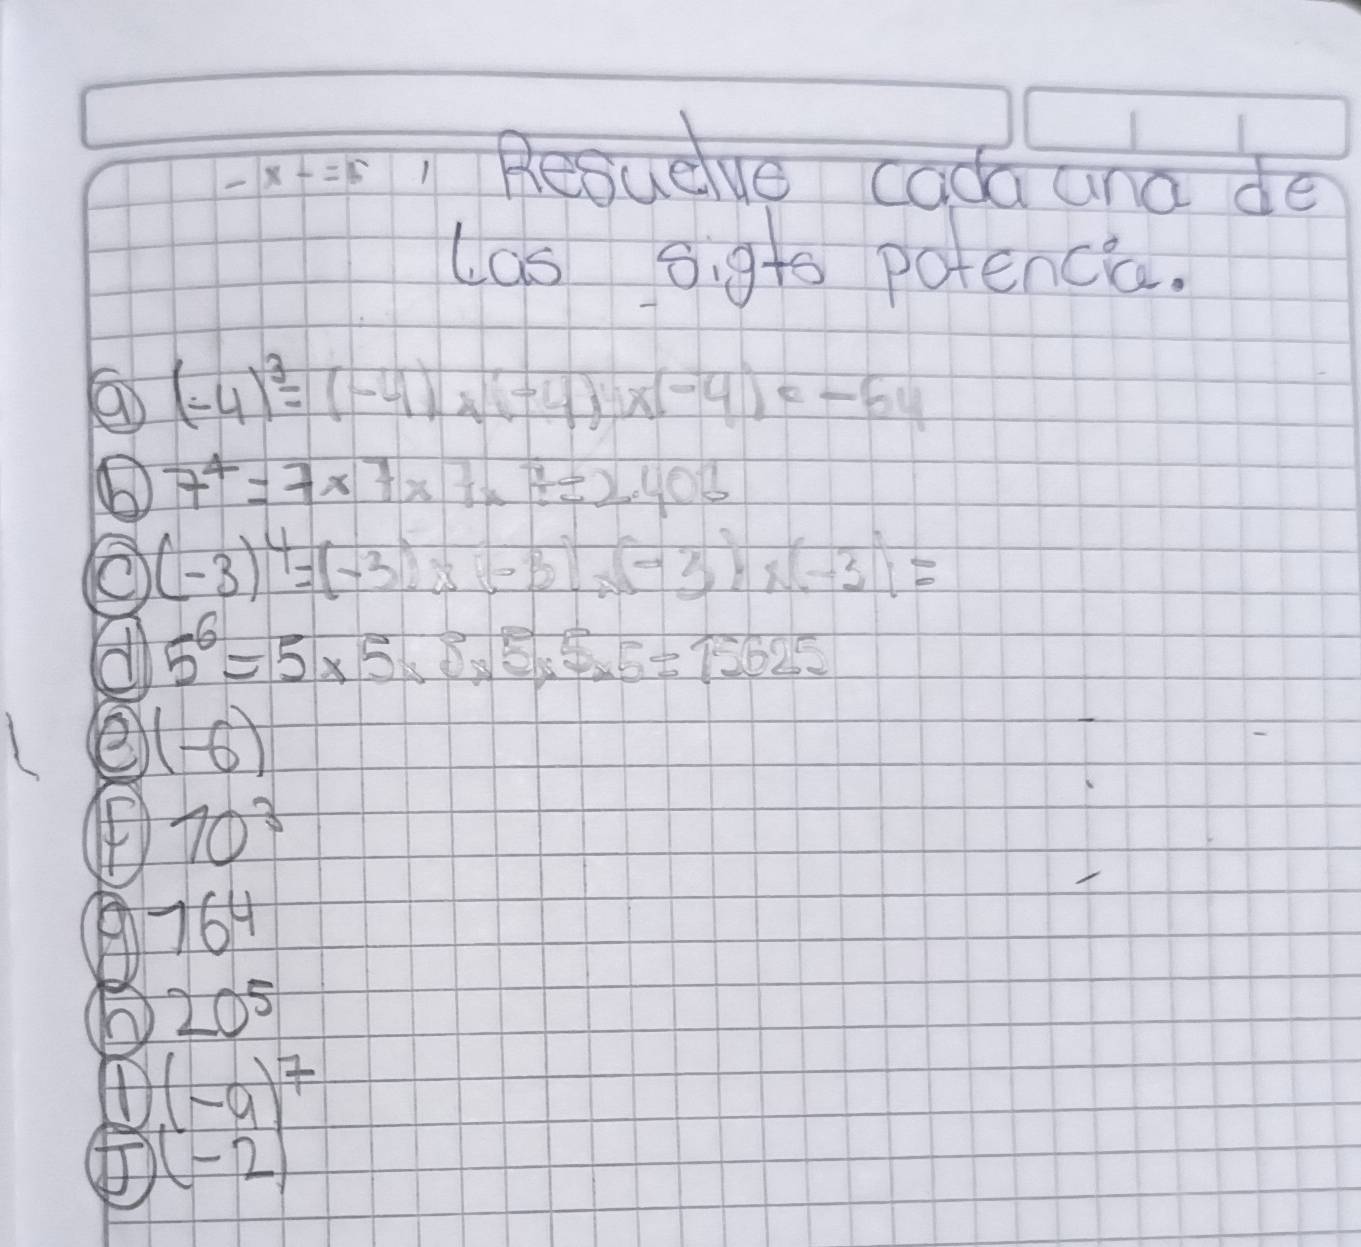 - x + = 5 , Resuelve cada una de
Las sigts potencia.
a (-4)³ = (-4) x (-4) x (-4) = -64
b 7⁴ = 7 x 7 x 7 x 7 = 2.401
c (-3)⁴ = (-3) x (-3) x (-3) x (-3) =
d 5⁶ = 5 x 5 x 5 x 5 x 5 x 5 = 15625
e (-6)
f 10³
g 16⁴
h 20⁵
i (-9)⁷
J (-2)